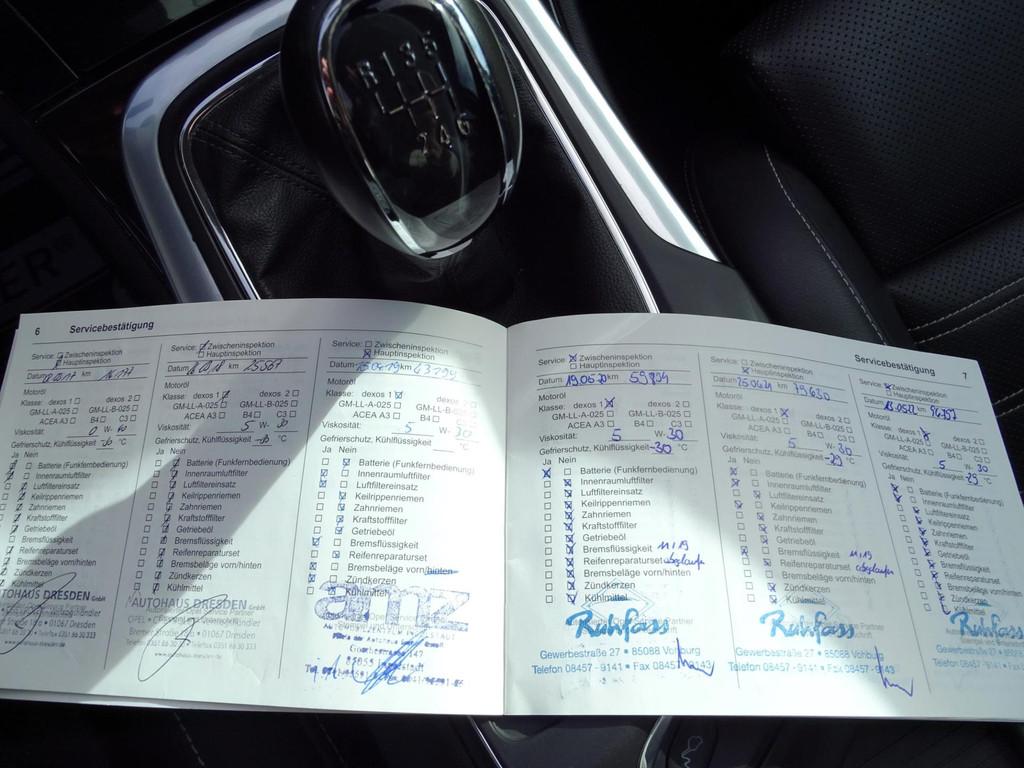 R 1 3 5
2 4 6
ER
6 Servicebestätigung
Service: ☐ Zwischeninspektion
☒ Hauptinspektion
Datum km
Motoröl
Klasse: dexos 1 ☐ dexos 2 ☐
GM-LL-A-025 ☐ GM-LL-B-025 ☐
ACEA A3 ☐ B4 ☐ C3 ☐
Viskosität: W-
Gefrierschutz, Kühlflüssigkeit °C
Ja Nein
Batterie (Funkfernbedienung)
Innenraumluftfilter
Luftfiltereinsatz
Keilrippenriemen
Zahnriemen
Kraftstofffilter
Getriebeöl
Bremsflüssigkeit
Reifenreparaturset
Bremsbeläge vorn/hinten
Zündkerzen
Kühlmittel
AUTOHAUS DRESDEN GmbH
01067 Dresden
Service: ☒ Zwischeninspektion
☐ Hauptinspektion
Datum km
Motoröl
Klasse: dexos 1 ☒ dexos 2 ☐
GM-LL-A-025 ☐ GM-LL-B-025 ☐
ACEA A3 ☐ B4 ☐ C3 ☐
Viskosität: 5 W-30
Gefrierschutz, Kühlflüssigkeit °C
Ja Nein
Batterie (Funkfernbedienung)
Innenraumluftfilter
Luftfiltereinsatz
Keilrippenriemen
Zahnriemen
Kraftstofffilter
Getriebeöl
Bremsflüssigkeit
Reifenreparaturset
Bremsbeläge vorn/hinten
Zündkerzen
Kühlmittel
AUTOHAUS DRESDEN GmbH
01067 Dresden
Service: ☐ Zwischeninspektion
☒ Hauptinspektion
Datum km
Motoröl
Klasse: dexos 1 ☒ dexos 2 ☐
GM-LL-A-025 ☐ GM-LL-B-025 ☐
ACEA A3 ☐ B4 ☐ C3 ☐
Viskosität: 5 W-30
Gefrierschutz, Kühlflüssigkeit °C
Ja Nein
Batterie (Funkfernbedienung)
Innenraumluftfilter
Luftfiltereinsatz
Keilrippenriemen
Zahnriemen
Kraftstofffilter
Getriebeöl
Bremsflüssigkeit
Reifenreparaturset
Bremsbeläge vorn/hinten
Zündkerzen
Kühlmittel
amz
Servicebestätigung 7
Service: ☒ Zwischeninspektion
☐ Hauptinspektion
Datum 19.05.20 km
Motoröl
Klasse: dexos 1 ☒ dexos 2 ☐
GM-LL-A-025 ☐ GM-LL-B-025 ☐
ACEA A3 ☐ B4 ☐ C3 ☐
Viskosität: 5 W-30
Gefrierschutz, Kühlflüssigkeit -30 °C
Ja Nein
Batterie (Funkfernbedienung)
Innenraumluftfilter
Luftfiltereinsatz
Keilrippenriemen
Zahnriemen
Kraftstofffilter
Getriebeöl
Bremsflüssigkeit 11/19
Reifenreparaturset
Bremsbeläge vorn/hinten
Zündkerzen
Kühlmittel
Ruhfass
Gewerbestraße 27 • 85088 Vohburg
Telefon 08457 - 9141 • Fax 08457 - 9143
Service: ☐ Zwischeninspektion
☒ Hauptinspektion
Datum km 79630
Motoröl
Klasse: dexos 1 ☒ dexos 2 ☐
GM-LL-A-025 ☐ GM-LL-B-025 ☐
ACEA A3 ☐ B4 ☐ C3 ☐
Viskosität: 5 W-30
Gefrierschutz, Kühlflüssigkeit -29 °C
Ja Nein
Batterie (Funkfernbedienung)
Innenraumluftfilter
Luftfiltereinsatz
Keilrippenriemen
Zahnriemen
Kraftstofffilter
Getriebeöl
Bremsflüssigkeit 11/19
Reifenreparaturset
Bremsbeläge vorn/hinten
Zündkerzen
Kühlmittel
Ruhfass
Gewerbestraße 27 • 85088 Vohburg
Telefon 08457 - 9141 • Fax 08457
Service: ☒ Zwischeninspektion
☐ Hauptinspektion
Datum km
Motoröl
Klasse: dexos 1 ☒ dexos 2 ☐
GM-LL-A-025 ☐ GM-LL-B-025 ☐
ACEA A3 ☐ B4 ☐ C3 ☐
Viskosität: 5 W-30
Gefrierschutz, Kühlflüssigkeit -29 °C
Ja Nein
Batterie (Funkfernbedienung)
Innenraumluftfilter
Luftfiltereinsatz
Keilrippenriemen
Zahnriemen
Kraftstofffilter
Getriebeöl
Bremsflüssigkeit
Reifenreparaturset
Bremsbeläge vorn/hinten
Zündkerzen
Kühlmittel
Ruhfass
Gewerbestraße 27 • 85088
Telefon 08457 - 9141 • Fax